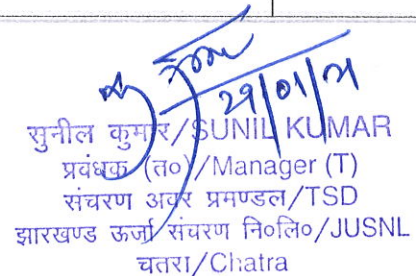 29/01/21
सुनील कुमार/SUNIL KUMAR
प्रबंधक (त०)/Manager (T)
संचरण अवर प्रमण्डल/TSD
झारखण्ड ऊर्जा संचरण नि०लि०/JUSNL
चतरा/Chatra